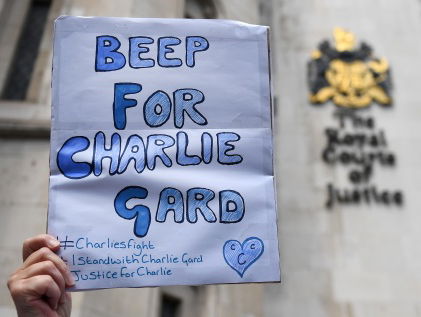 BEEP
FOR
CHARLIE
GARD
#Charliesfight
#IStandwith Charlie Gard
Justice for Charlie
C C
C
The
Royal
Courts of
Justice